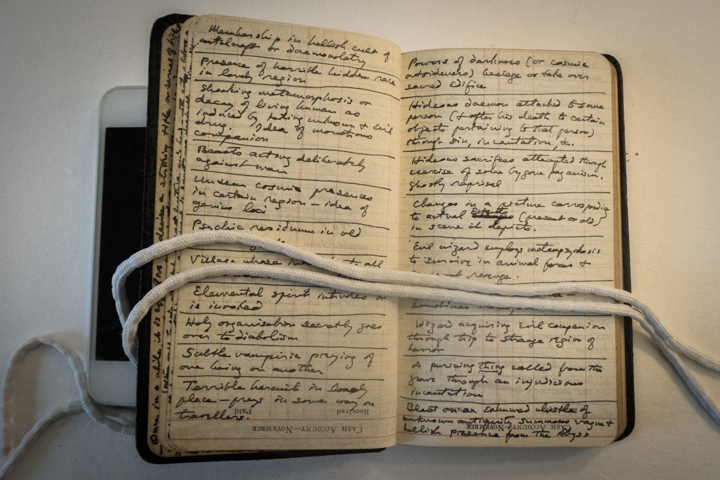 Membership in hellish cult of
witchcraft or daemonolatry
Presence of horrible hidden race
in lonely region
Shocking metamorphosis or
decay of living human as
induced by taking unknown & evil
drug. Idea of monstrous
companion
Beasts acting deliberately
against man
Unseen cosmic presences
in certain region — idea of
genius loci
Psychic residuum in old
Village whose all
Elemental spirit intrudes or
is invoked
Holy organisation secretly goes
over to diabolism
Subtle vampiric preying of
one being on another
Terrible hermit in lonely
place — preys in some way on
travellers.
Received
Paid
CASH ACCOUNT—NOVEMBER
Powers of darkness (or cosmic
outsideness) besiege or take over
sacred edifice
Hideous daemon attached to some
person (& after his death to certain
objects pertaining to that person)
through sin, incantation, &c.
Hideous sacrifices attempted through
exercise of some bygone paganism.
Ghostly reprisal
Changes in a picture corresponding
to actual events (present or old)
in scene it depicts.
Evil wizard employs metempsychosis
to survive in animal forms &
revenge.
Sometimes
Wizard acquiring evil companion
through trip to strange region of
horror
A pursuing thing called from the
grave through an injudicious
incantation
Blast on an exhumed whistle of
unknown antiquity summons vague &
hellish presence from the abyss
CASH ACCOUNT—NOVEMBER